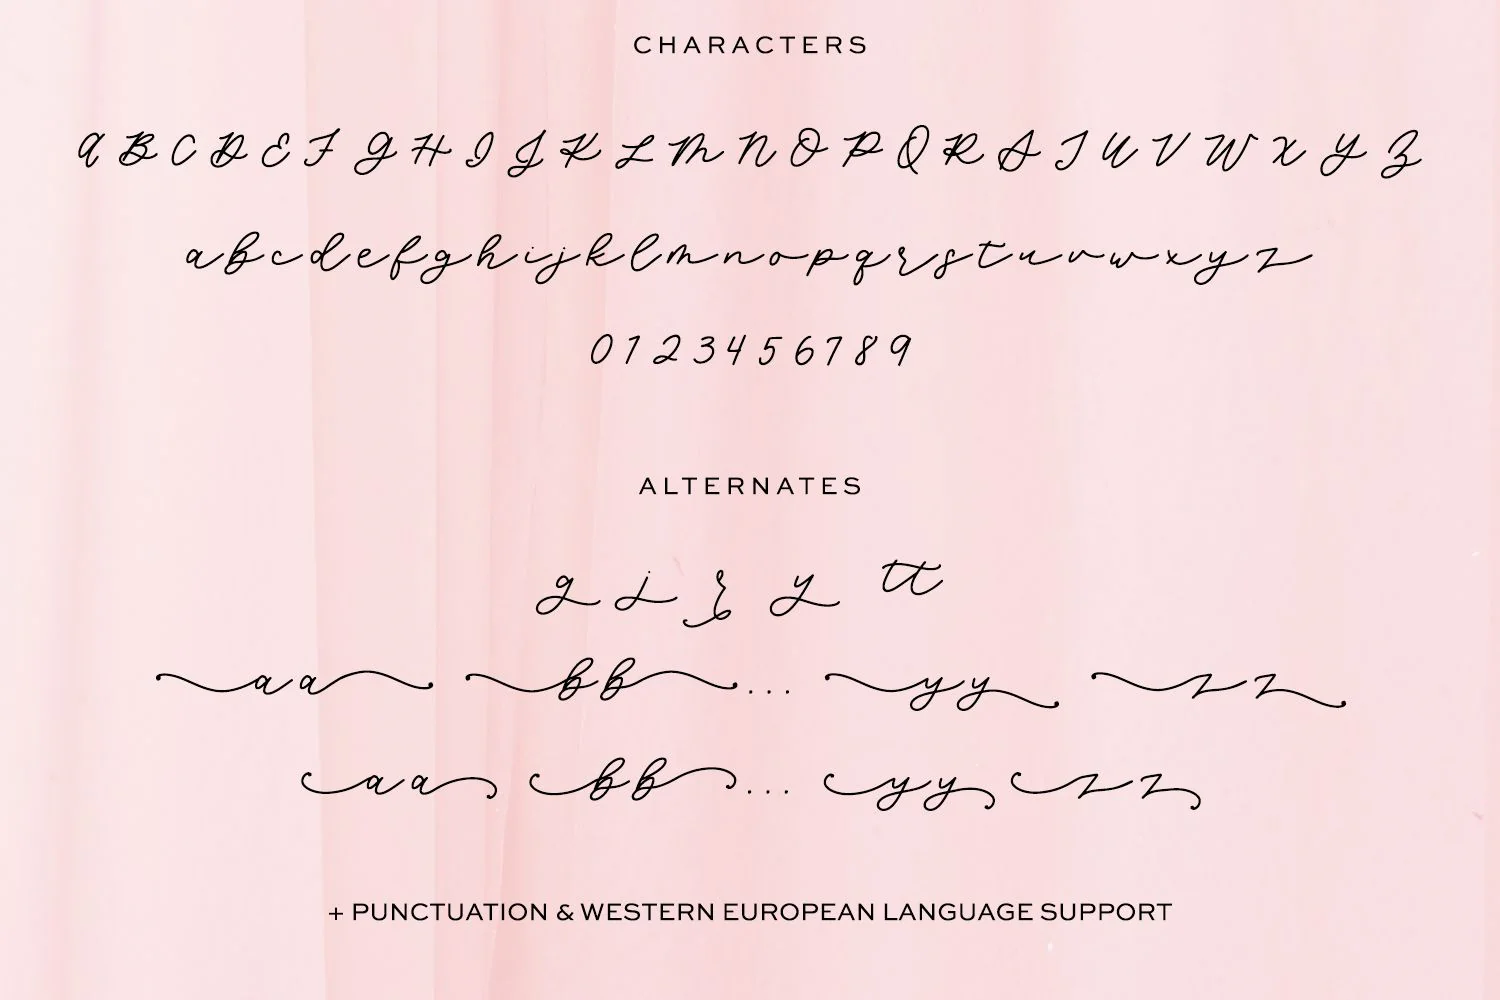 CHARACTERS
A B C D E F G H I J K L M N O P Q R S T U V W X Y Z
a b c d e f g h i j k l m n o p q r s t u v w x y z
0 1 2 3 4 5 6 7 8 9
ALTERNATES
g j r y tt
aa bb... yy zz
aa bb... yy zz
+ PUNCTUATION & WESTERN EUROPEAN LANGUAGE SUPPORT